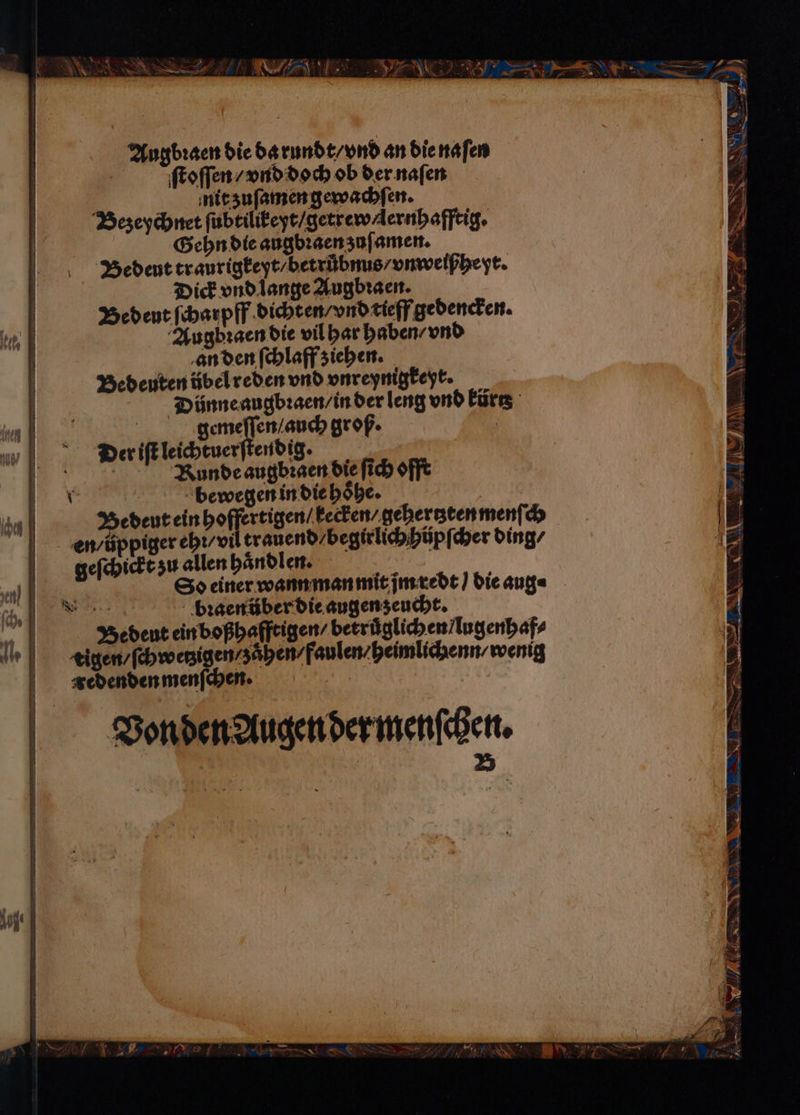 Augbꝛaen die da rundt/vnd an die naſen
ſtoſſen/vnd doch ob der naſen
nit zuſamen gewachſen.
Bezeychnet ſubtilikeyt/getrew/lernhafftig.
Gehn die augbꝛaen zuſamen.
Bedeut traurigkeyt/betruͤbnus/vnweißheyt.
Dick vnd lange Augbꝛaen.
Bedeut ſcharpff dichten/vnd tieff gedencken.
Augbꝛaen die vil har haben/vnd
an den ſchlaff ziehen.
Bedeuten übel reden vnd vnreynigkeyt.
Dünne augbꝛaen/in der leng vnd kürtz
gemeſſen/auch groß.
Der iſt leichtuerſtendig.
Runde augbꝛaen die ſich offt
bewegen in die hoͤhe.
Bedeut ein hoffertigen/kecken/gehertzten menſch
en/üppiger ehꝛ/vil trauend/begirlich hüpſcher ding/
geſchickt zu allen haͤndlen.
So einer wann man mit jm redt/die aug⸗
bꝛaen über die augen zeucht.
Bedeut ein boßhafftigen/betruͤglichen/lugenhaf⸗
tigen/ſchwetzigen/zaͤhen/faulen/heimlichenn/wenig
redenden menſchen.
Von den Augen der menſchen.
B